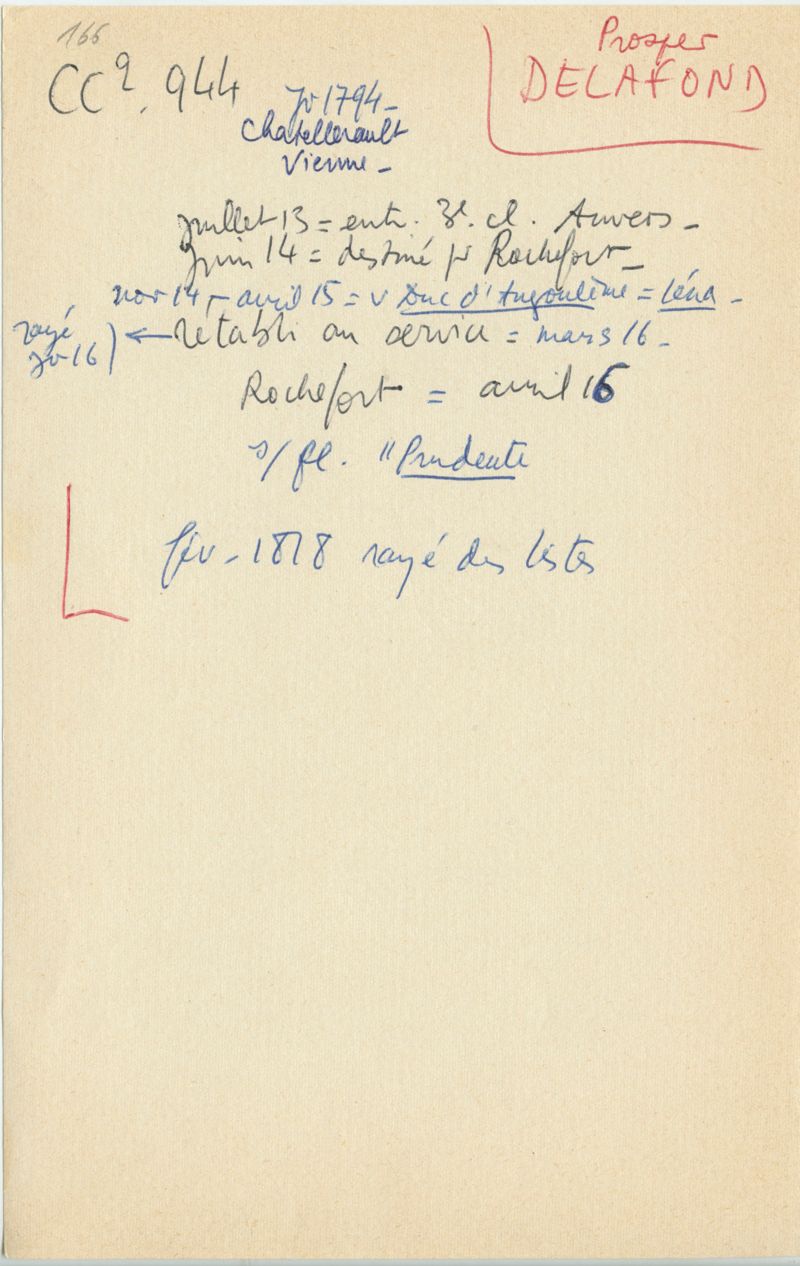 166
CC2. 944
Prosper
DELAFOND
Jr 1794-
Chatellerault
Vienne-
juillet 13 = entr. 3e. cl. Anvers-
juin 14 = destiné pr Rochefort-
nov 14 - avril 15 = v Duc d'Angoulême = Iéna-
rayé
jr 16) ← rétabli au service = mars 16-
Rochefort = avril 16
s/ fl. "Prudente
fév- 1818 rayé des listes